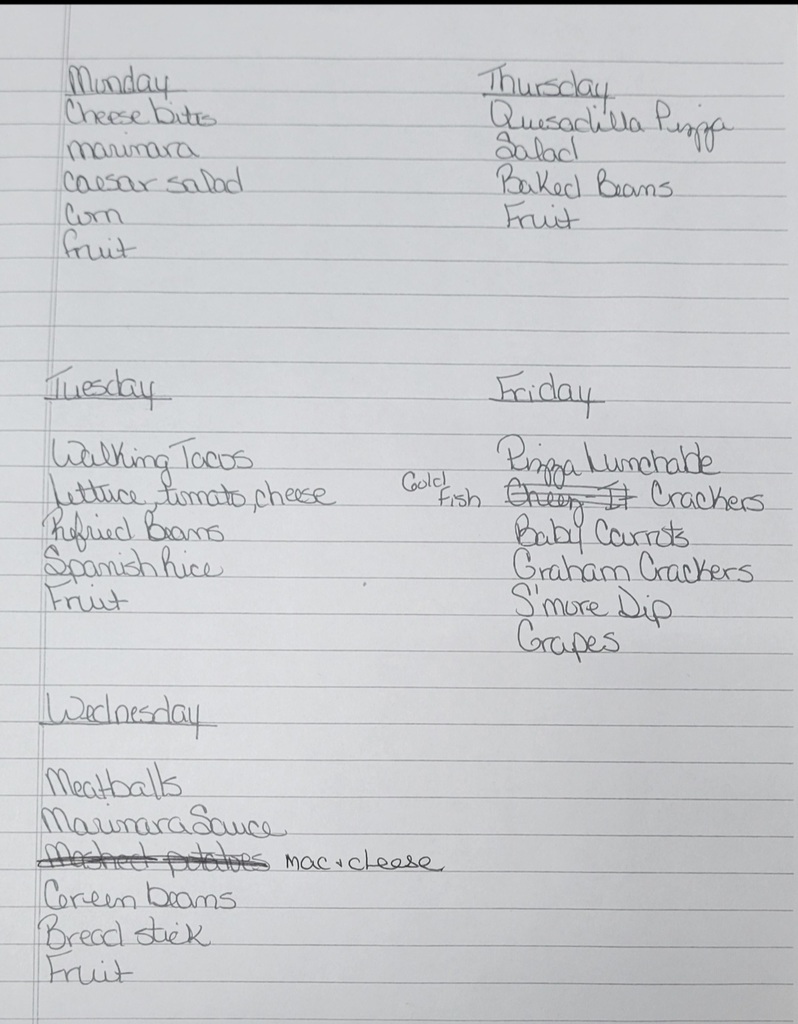 Monday
Cheese bites
marinara
caesar salad
Corn
fruit
Tuesday
Walking Tacos
Lettuce, tomato, cheese
Refried Beans
Spanish Rice
Fruit
Wednesday
Meatballs
Marinara Sauce
Mashed potatoes mac + cheese
Green beans
Bread stick
Fruit
Thursday
Quesadilla Pizza
Salad
Baked Beans
Fruit
Friday
Pizza Lunchable
Gold fish Cheez It Crackers
Baby Carrots
Graham Crackers
S'more Dip
Grapes